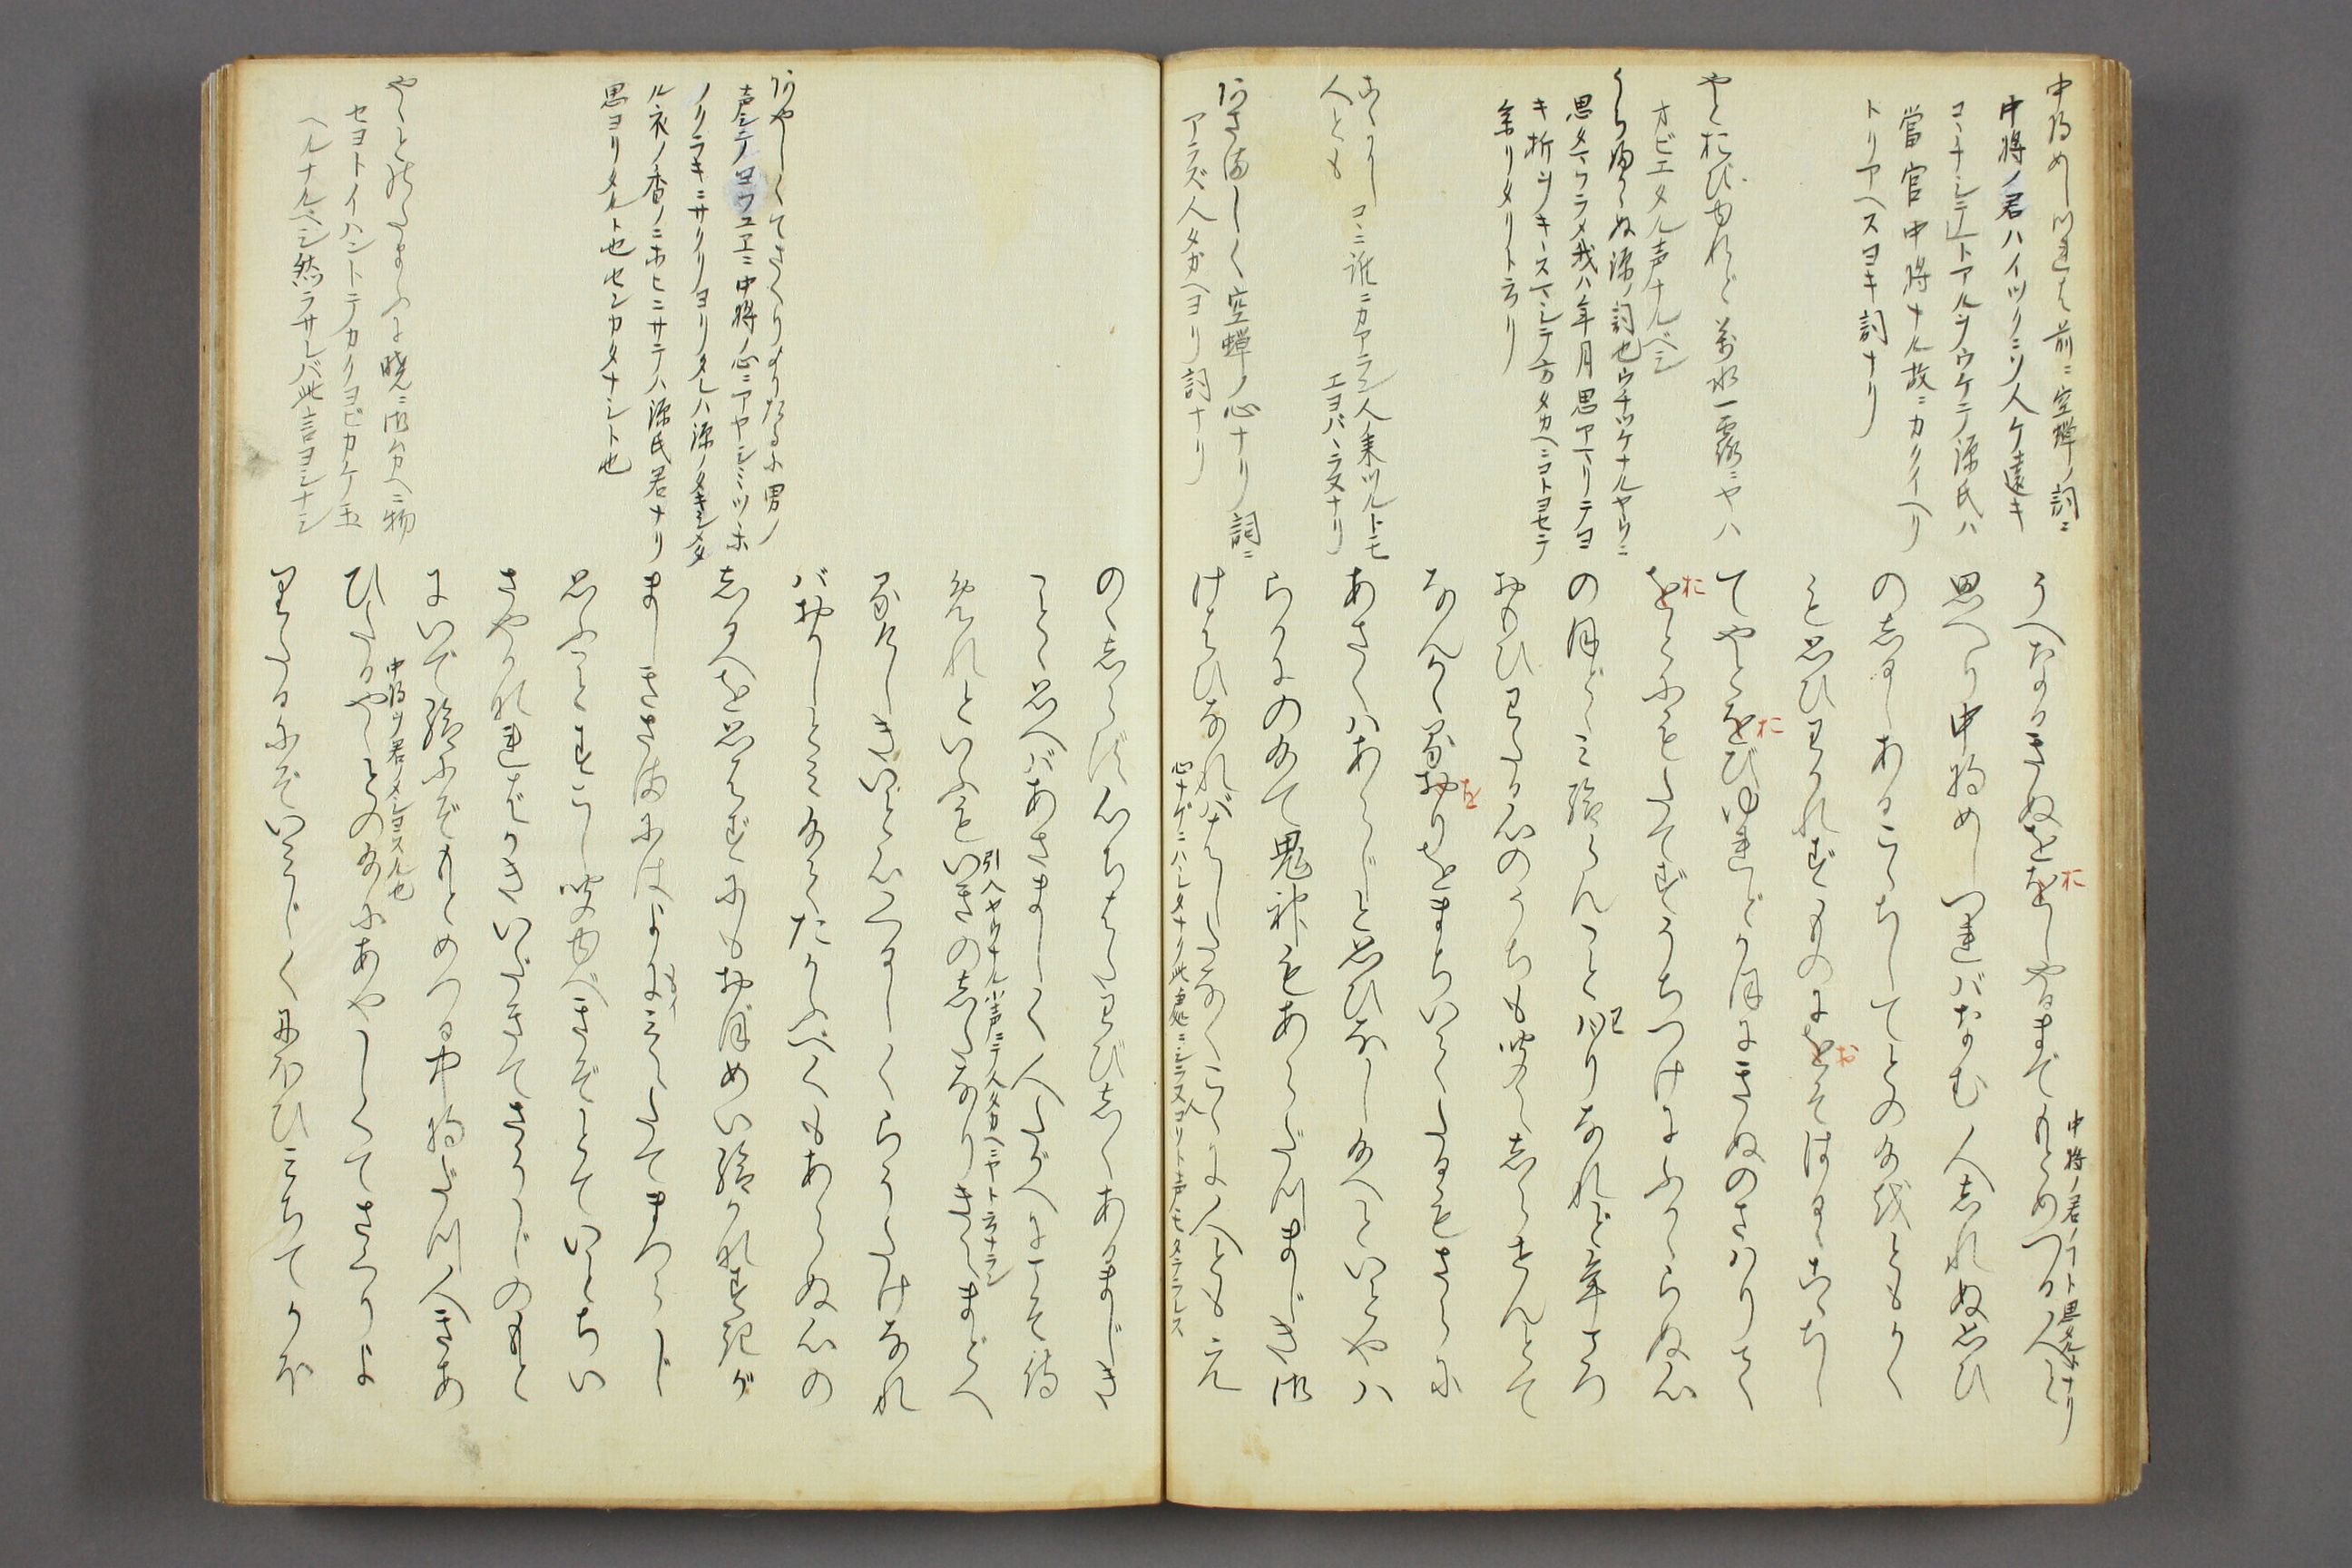 中将めしつれば 前ニ空蝉ノ詞ニ
中将ノ君ハイツクニソ人ケ遠キ
コヽチシテトアルヲウケテ源氏ハ
當官中将ナル故ニカクイヘリ
トリアヘスヨキ詞ナリ
やとおびゆれど 万水一露ニヤハ
オビエタル声ナルベシ
うちつけにふかゝらぬ 源ノ詞也ウチツケナルヤウニ
思タマウラメ我ハ年月思アマリテヨ
キ折ヲ
余リタリトナリ
こゝに人とも コヽニ誰ニカアラン人来ツルトモ
エヨバヽラヌナリ
あさましく 空蝉ノ心ナリ詞ニ
アラズ人タガヘヨリ詞ナリ
うへなるきぬををしやるまでもとめつる人と
お
中将ノ君ノコト思タルナリ
思へり中将めしつればなむ人しれぬ思ひ
のしるしあるこゝちしてとの給をともかく
も思ひわかれずものにをそはるゝこゝちし
お
てやとをびゆれどかほにきぬのさはりて
お
をとにもたてずうちつけにふかゝらぬ心
お
のほどゝミ給らんことはりなれど年ごろ
わ
おもひわたる心のうちも聞えしらせんとて
なんかゝるおりをまちいでたるもさらに
を
あさくハあらじと思ひなし給へといとやハ
らかにの給て鬼神もあらだつまじき御
けはひなれバはしたなくこゝに人ともえ
あやしくてさぐりよりたるに 男ノ
声シテノ玉フユヱニ中将ノ心ニアヤシミツヽ
ノクラキニサクリヨリタレハ源ノタキシメタ
ル衣ノ香ノニホヒニサテハ源氏君ナリ
思ヨリタルト也センカタナシト也
やゝとのたまふに 暁ニ御むかへニ物
セヨトイハントテカクヨビカケ玉
ヘルナルベシ然ラサレバ此言ヨシナシ
のゝしらず心ちはたわびしくあるまじき
ことゝ思へバあさましく人たがへにこそ侍
めれといふもいきのしたなりきえまどへ
引入ヤウナル小声ニテ人タカヘニヤト云ナラン
るけしきいと心くるしくらうたげなれ
バおかしとミ給てたがふべくもあらぬ心の
しるべを思はずにもおぼめい給かなすきが
ましきさまにはよに見えたてまつらじ
思ふことすこし聞ゆべきぞとていとちい
さやかなればかきいだきてさうじのもと
にいで給ふにぞもとめつる中将だつ人きあ
ひたるやゝとの給ふにあやしくてさぐりよ
中将ノ君ノメシヨスル也
りたるにぞいみじくにほひミちてかほ